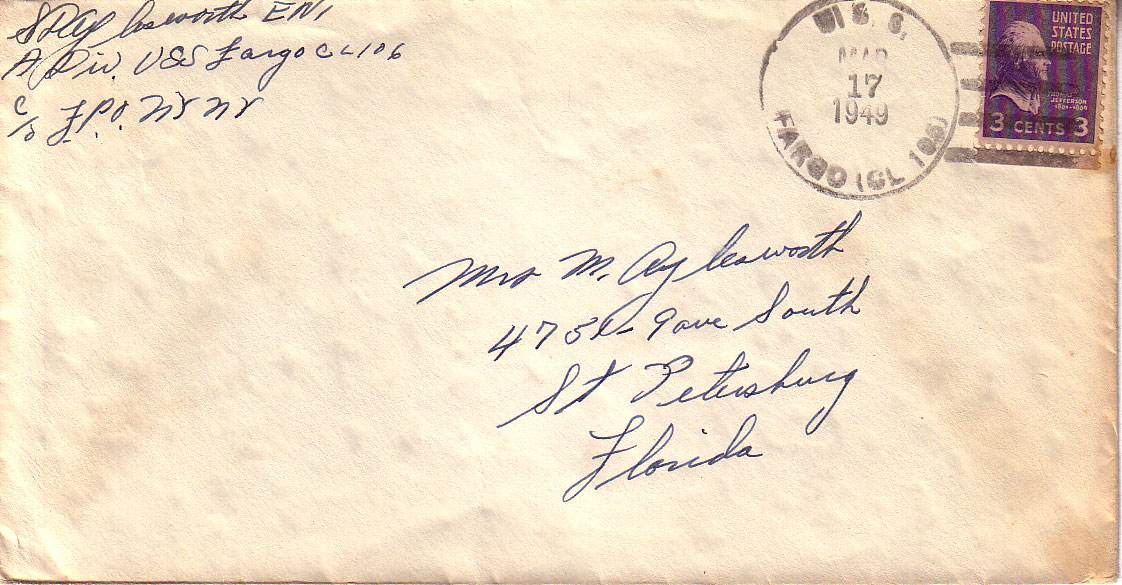 Aylesworth EN1
A Div. USS Fargo CL106
c/o F.P.O. NY NY
U. S. S.
MAR
17
1949
FARGO (CL 106)
UNITED
STATES
POSTAGE
THOMAS
JEFFERSON
1801-1809
3 CENTS 3
Mrs M. Aylesworth
9 ave South
St Petersburg
Florida